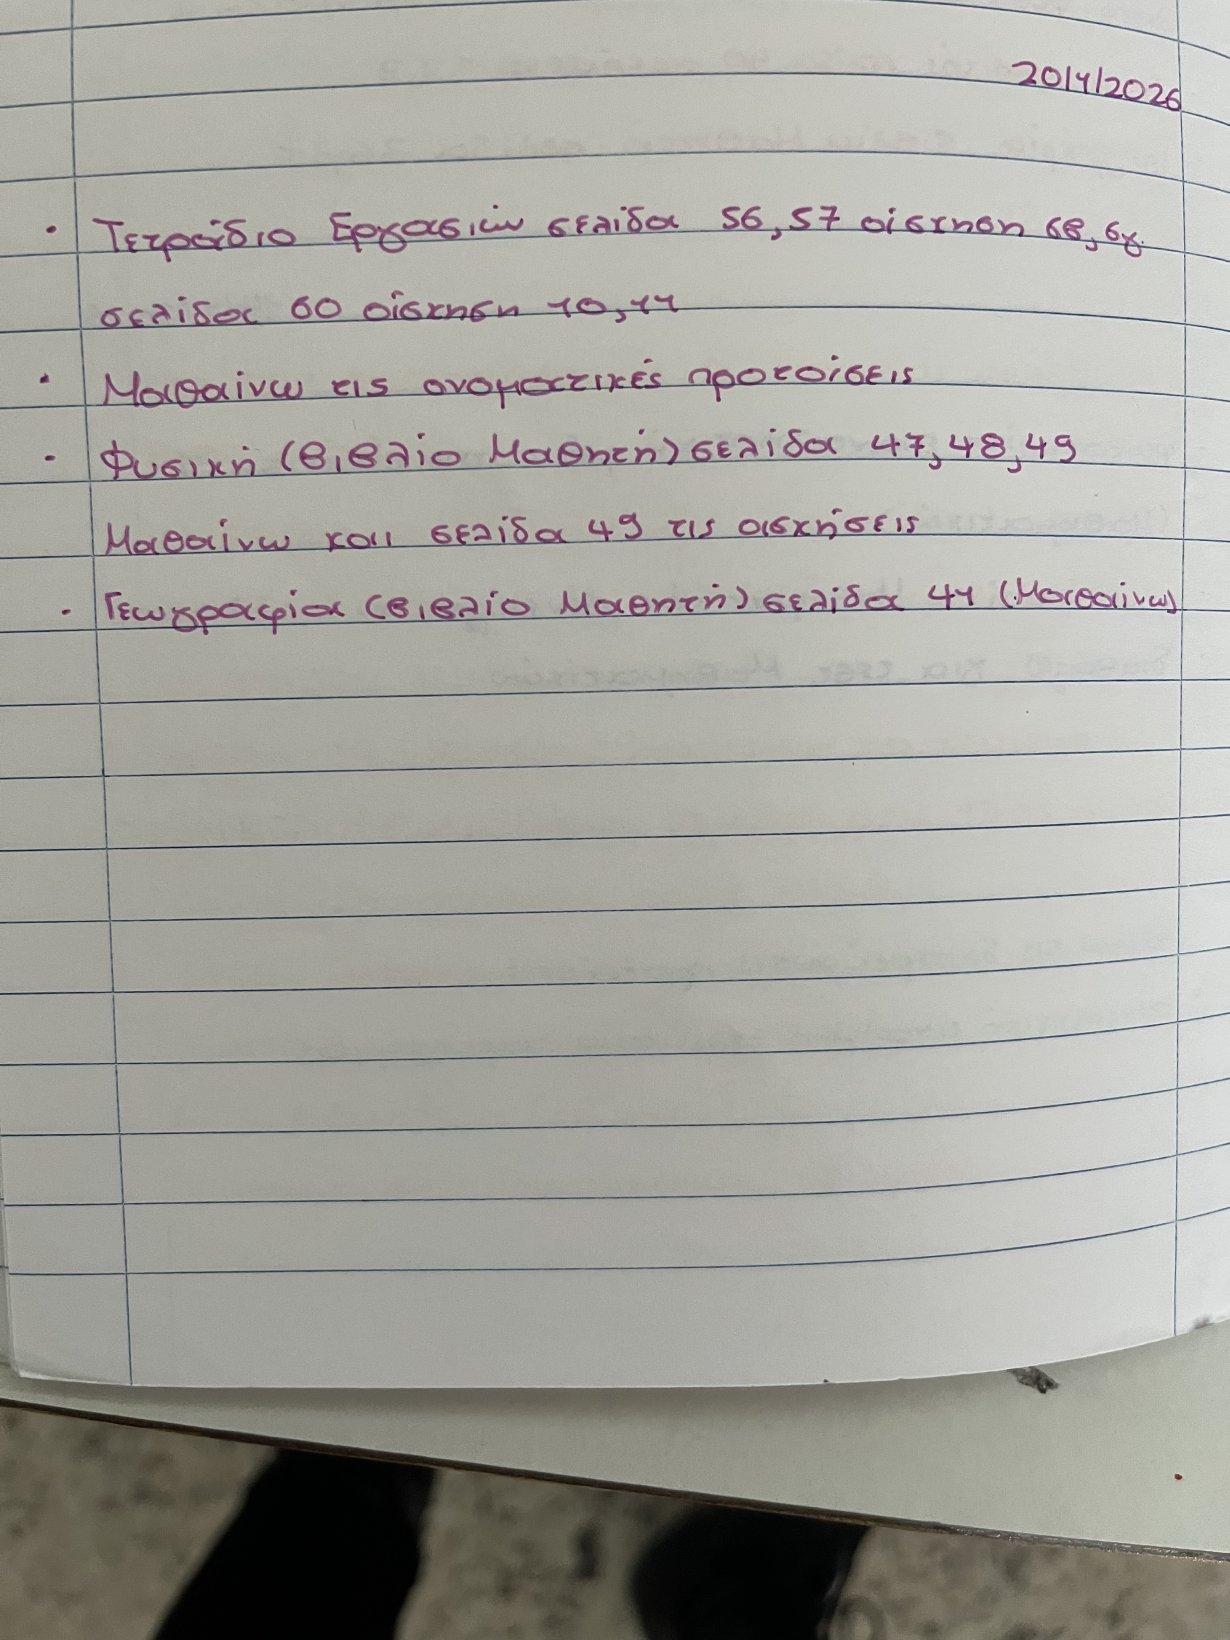 20/4/2026
· Τετράδιο Εργασιών σελίδα 56,57 άσκηση 6β, 6γ.
σελίδα 60 άσκηση 10,11
· Μαθαίνω τις ονοματικές προτάσεις
· Φυσική (Βιβλίο Μαθητή) σελίδα 47,48,49
Μαθαίνω και σελίδα 49 τις ασκήσεις
· Γεωγραφία (Βιβλίο Μαθητή) σελίδα 41 (Μαθαίνω)